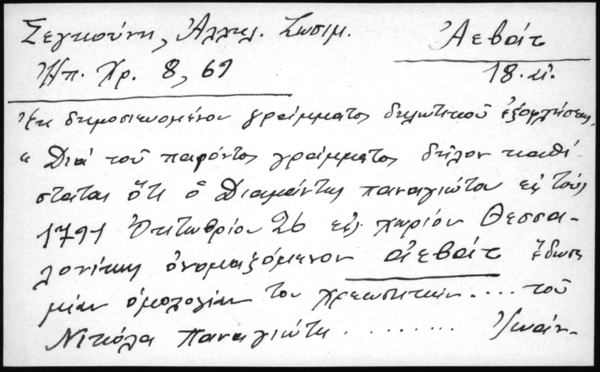 Σεγκούνη, Ἀλληλ. Ζωσιμ.
Ἀεβάτ
Ἠπ. Χρ. 8, 69
18. αἰ.
Ἐκ δημοσιευομένου γράμματος δηλωτικοῦ ἐξοφλήσεως
"Διά τοῦ παρόντος γράμματος δῆλον καθί-
σταται ὅτι ὁ Διαμάντης παναγιώτου εἰς τούς
1791 Ὀκτωβρίου 26 εἰς χωρίον Θεσσα-
λονίκης ὀνομαζόμενον ἀεβάτ ἔδωσε
μίαν ὁμολογίαν του χρεωστικήν .... τοῦ
Νικόλα παναγιώτη ........ Ἰωάν-